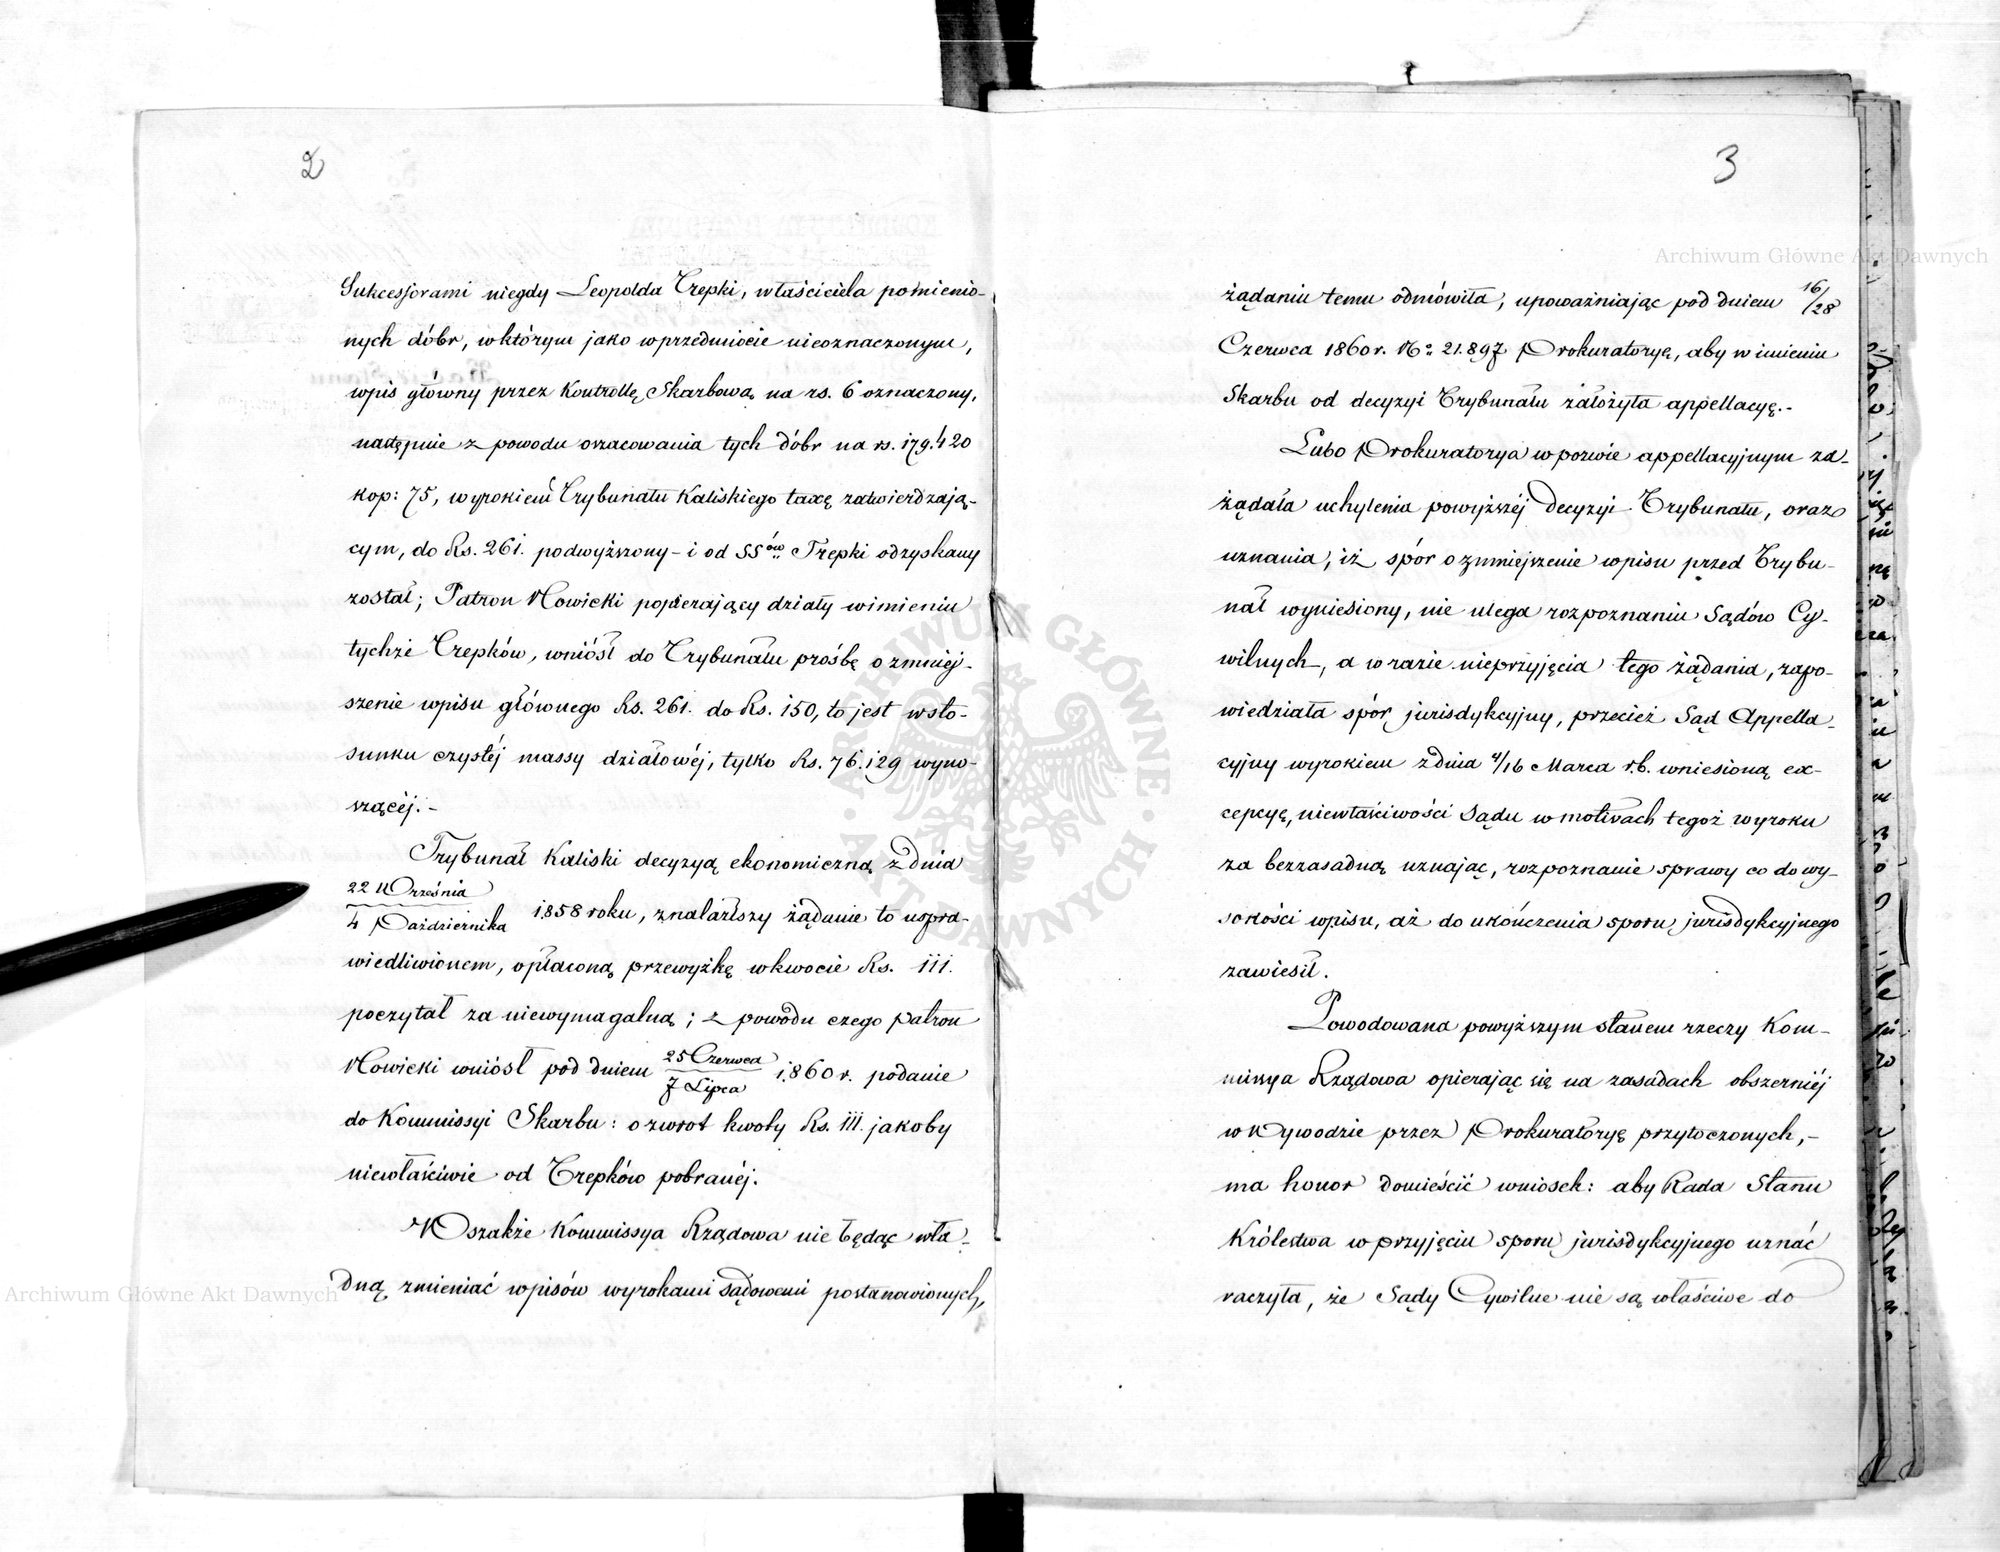 2
Sukcessorami niegdy Leopolda Trepki, właściciela pomienio-
nych dóbr, w którym jako w przedmiocie nieoznaczonym,
wpis główny przez Kontrollę Skarbową na rs. 6 oznaczony,
następnie z powodu oszacowania tych dóbr na rs. 179.420
kop: 75, wyrokiem Trybunału Kaliskiego taxę zatwierdzają-
cym, do Rs. 261. podwyższony – i od SSów Trepki odzyskany
został; Patron Nowicki popierający działy w imieniu
tychże Trepków, wniósł do Trybunału prośbę o zmniej-
szenie wpisu głównego Rs. 261. do Rs. 150, to jest w sto-
sunku czystéj massy działowéj, tylko Rs. 76.129 wyno-
szącéj. –
Trybunał Kaliski decyzyą ekonomiczną z dnia
22 Września
4 Października 1858 roku, znalazłszy żądanie to uspra-
wiedliwionem, opłaconą przewyżkę w kwocie Rs. 111.
poczytał za niewymagalną; z powodu czego Patron
Nowicki wniósł pod dniem 25 Czerwca
7 Lipca 1860 r. podanie
do Kommissyi Skarbu: o zwrot kwoty Rs. 111. jakoby
niewłaściwie od Trepków pobranéj.
Wszakże Kommissya Rządowa nie będąc wła-
dną zmieniać wpisów wyrokami sądowemi postanowionych,
3
żądaniu temu odmówiła, upoważniając pod dniem 16/28
Czerwca 1860 r. No 21.897 Prokuratoryę, aby w imieniu
Skarbu od decyzyi Trybunału założyła appellacyę. -
Lubo Prokuratorya w pozwie appellacyjnym za-
żądała uchylenia powyższéj decyzyi Trybunału, oraz
uznania, iż spór o zmniejszenie wpisu przed Trybu-
nał wyniesiony, nie ulega rozpoznaniu Sądów Cy-
wilnych, a w razie nieprzyjęcia tego żądania, zapo-
wiedziała spór jurisdykcyjny, przecież Sąd Appella-
cyjny wyrokiem z dnia 4/16 Marca r.b. wniesioną ex-
cepcyę, niewłaściwości Sądu w motivach tegoż wyroku
za bezzasadną uznając, rozpoznanie sprawy co do wy-
sokości wpisu, aż do ukończenia sporu jurisdykcyjnego
zawiesił.
Powodowana powyższym stanem rzeczy Kom-
missya Rządowa opierając się na zasadach obszerniéj
w Wywodzie przez Prokuratoryę przytoczonych, –
ma honor domieścić wniosek: aby Rada Stanu
Królestwa w przyjęciu sporu jurisdykcyjnego uznać
raczyła, że Sądy Cywilne nie są właściwe do
Archiwum Główne Akt Dawnych
Archiwum Główne Akt Dawnych
ARCHIWUM GŁÓWNE · AKT DAWNYCH ·